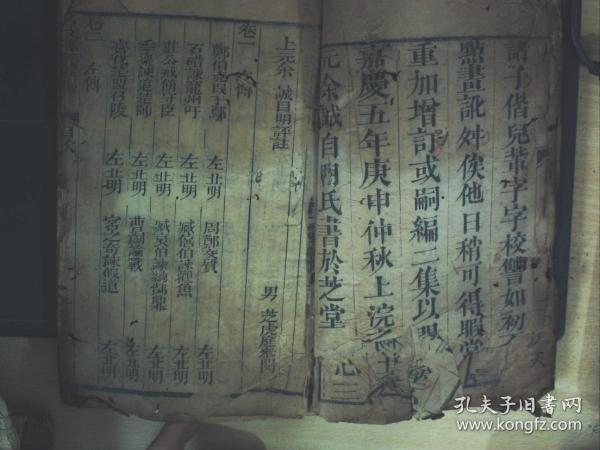 諸子偕兒輩字字校讐如初
點畫訛舛俟他日稍可得暇當
重加增訂或嗣編二集以
嘉慶五年庚申仲秋上浣
元余誠自明氏書於芝堂
心三
上元余 誠自明評註
男 芝
卷一 左傳
鄭伯克段于鄢 左丘明 周鄭交質 左丘明
石碏諫寵州吁 左丘明 臧僖伯諫觀魚 左丘明
莊公戒飭守臣 左丘明 臧哀伯諫納郜鼎 左丘明
季梁諫追楚師 左丘明 曹劌論戰 左丘明
齊伐楚盟召陵 左丘明 宮之奇諫假道 左丘明
卷二 左傳
目次
孔夫子旧书网
www.kongfz.com